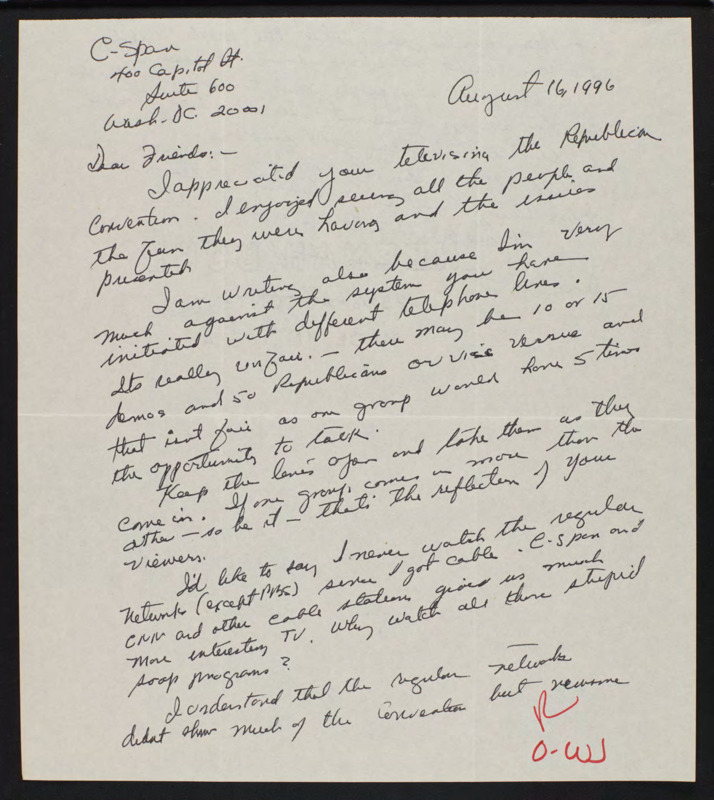 C-Span
400 Capitol St.
Suite 600
Wash. DC. 20001
August 16, 1996
Dear Friends: -
I appreciated your televising the Republican
Convention. I enjoyed seeing all the people and
the fun they were having and the issues
presented
I am writing also because I'm very
much against the system you have
initiated with different telephone lines.
Its really unfair. - there may be 10 or 15
demos and 50 Republicans or vice versue and
that isnt fair as one group would have 5 times
the opportunity to talk.
Keep the lines open and take them as they
come in. If one group comes in more than the
other - so be it - thats the reflection of your
viewers.
I'd like to say I never watch the regular
Networks (except PBS) since I got cable. C-Span and
CNN and other cable stations gives us much
more interesting TV. Why watch all those stupid
soap programs?
I understand that the regular networks
didnt show much of the convention but
R
O-WJ